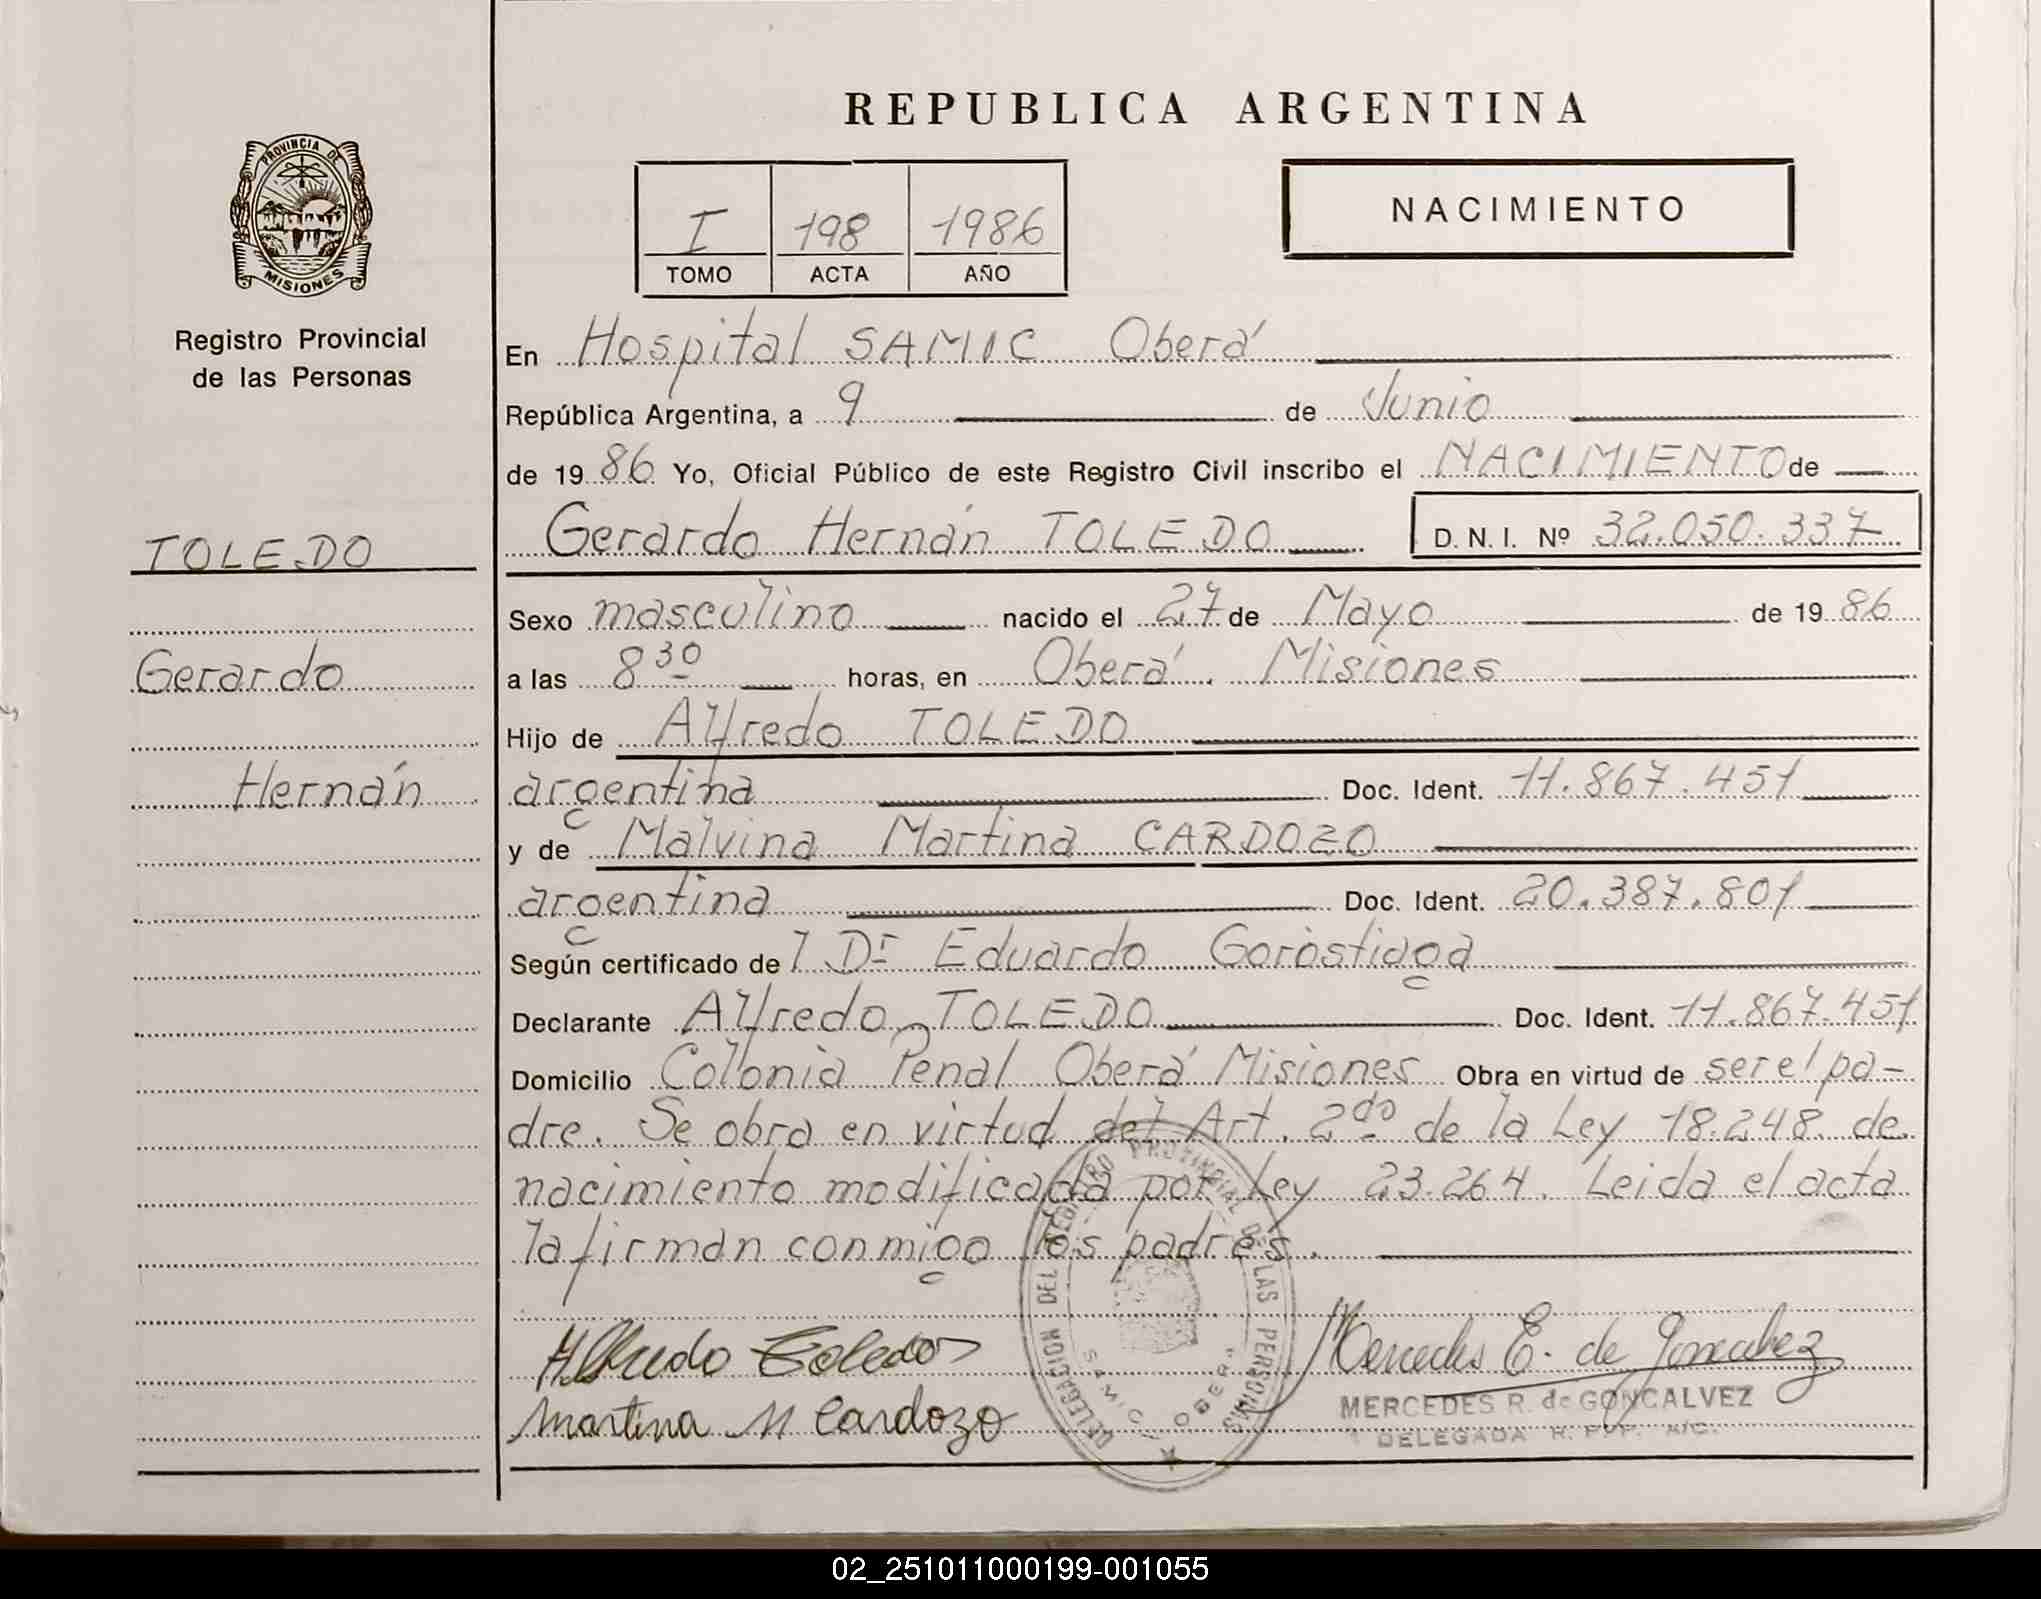 REPUBLICA ARGENTINA
PROVINCIA DE
MISIONES
Registro Provincial
de las Personas
I 198 1986
TOMO ACTA AÑO
NACIMIENTO
En Hospital SAMIC Oberá
República Argentina, a 9 de Junio
de 19 86 Yo, Oficial Público de este Registro Civil inscribo el NACIMIENTO de
Gerardo Hernán TOLEDO D. N. I. Nº 32.050.337
TOLEDO
Gerardo
Hernán
Sexo masculino nacido el 27 de Mayo de 19 86
a las 8 30 horas, en Oberá. Misiones
Hijo de Alfredo TOLEDO
argentina Doc. Ident. 11.867.451
y de Malvina Martina CARDOZO
argentina Doc. Ident. 20.387.801
Según certificado de l Dr Eduardo Gorostiaga
Declarante Alfredo TOLEDO Doc. Ident. 11.867.451
Domicilio Colonia Penal Oberá Misiones Obra en virtud de ser el pa-
dre. Se obra en virtud del Art. 2do de la Ley 18.248 de
nacimiento modificada por Ley 23.264. Leida el acta
la firman conmigo los padres.
Alfredo Toledo
Martina M Cardozo
DELEGACION DEL REGISTRO PROVINCIAL DE LAS PERSONAS
SAMIC OBERA
Mercedes E. de Goncalvez
MERCEDES R. de GONÇALVEZ
DELEGADA R. PVP. A/C.
02_251011000199-001055